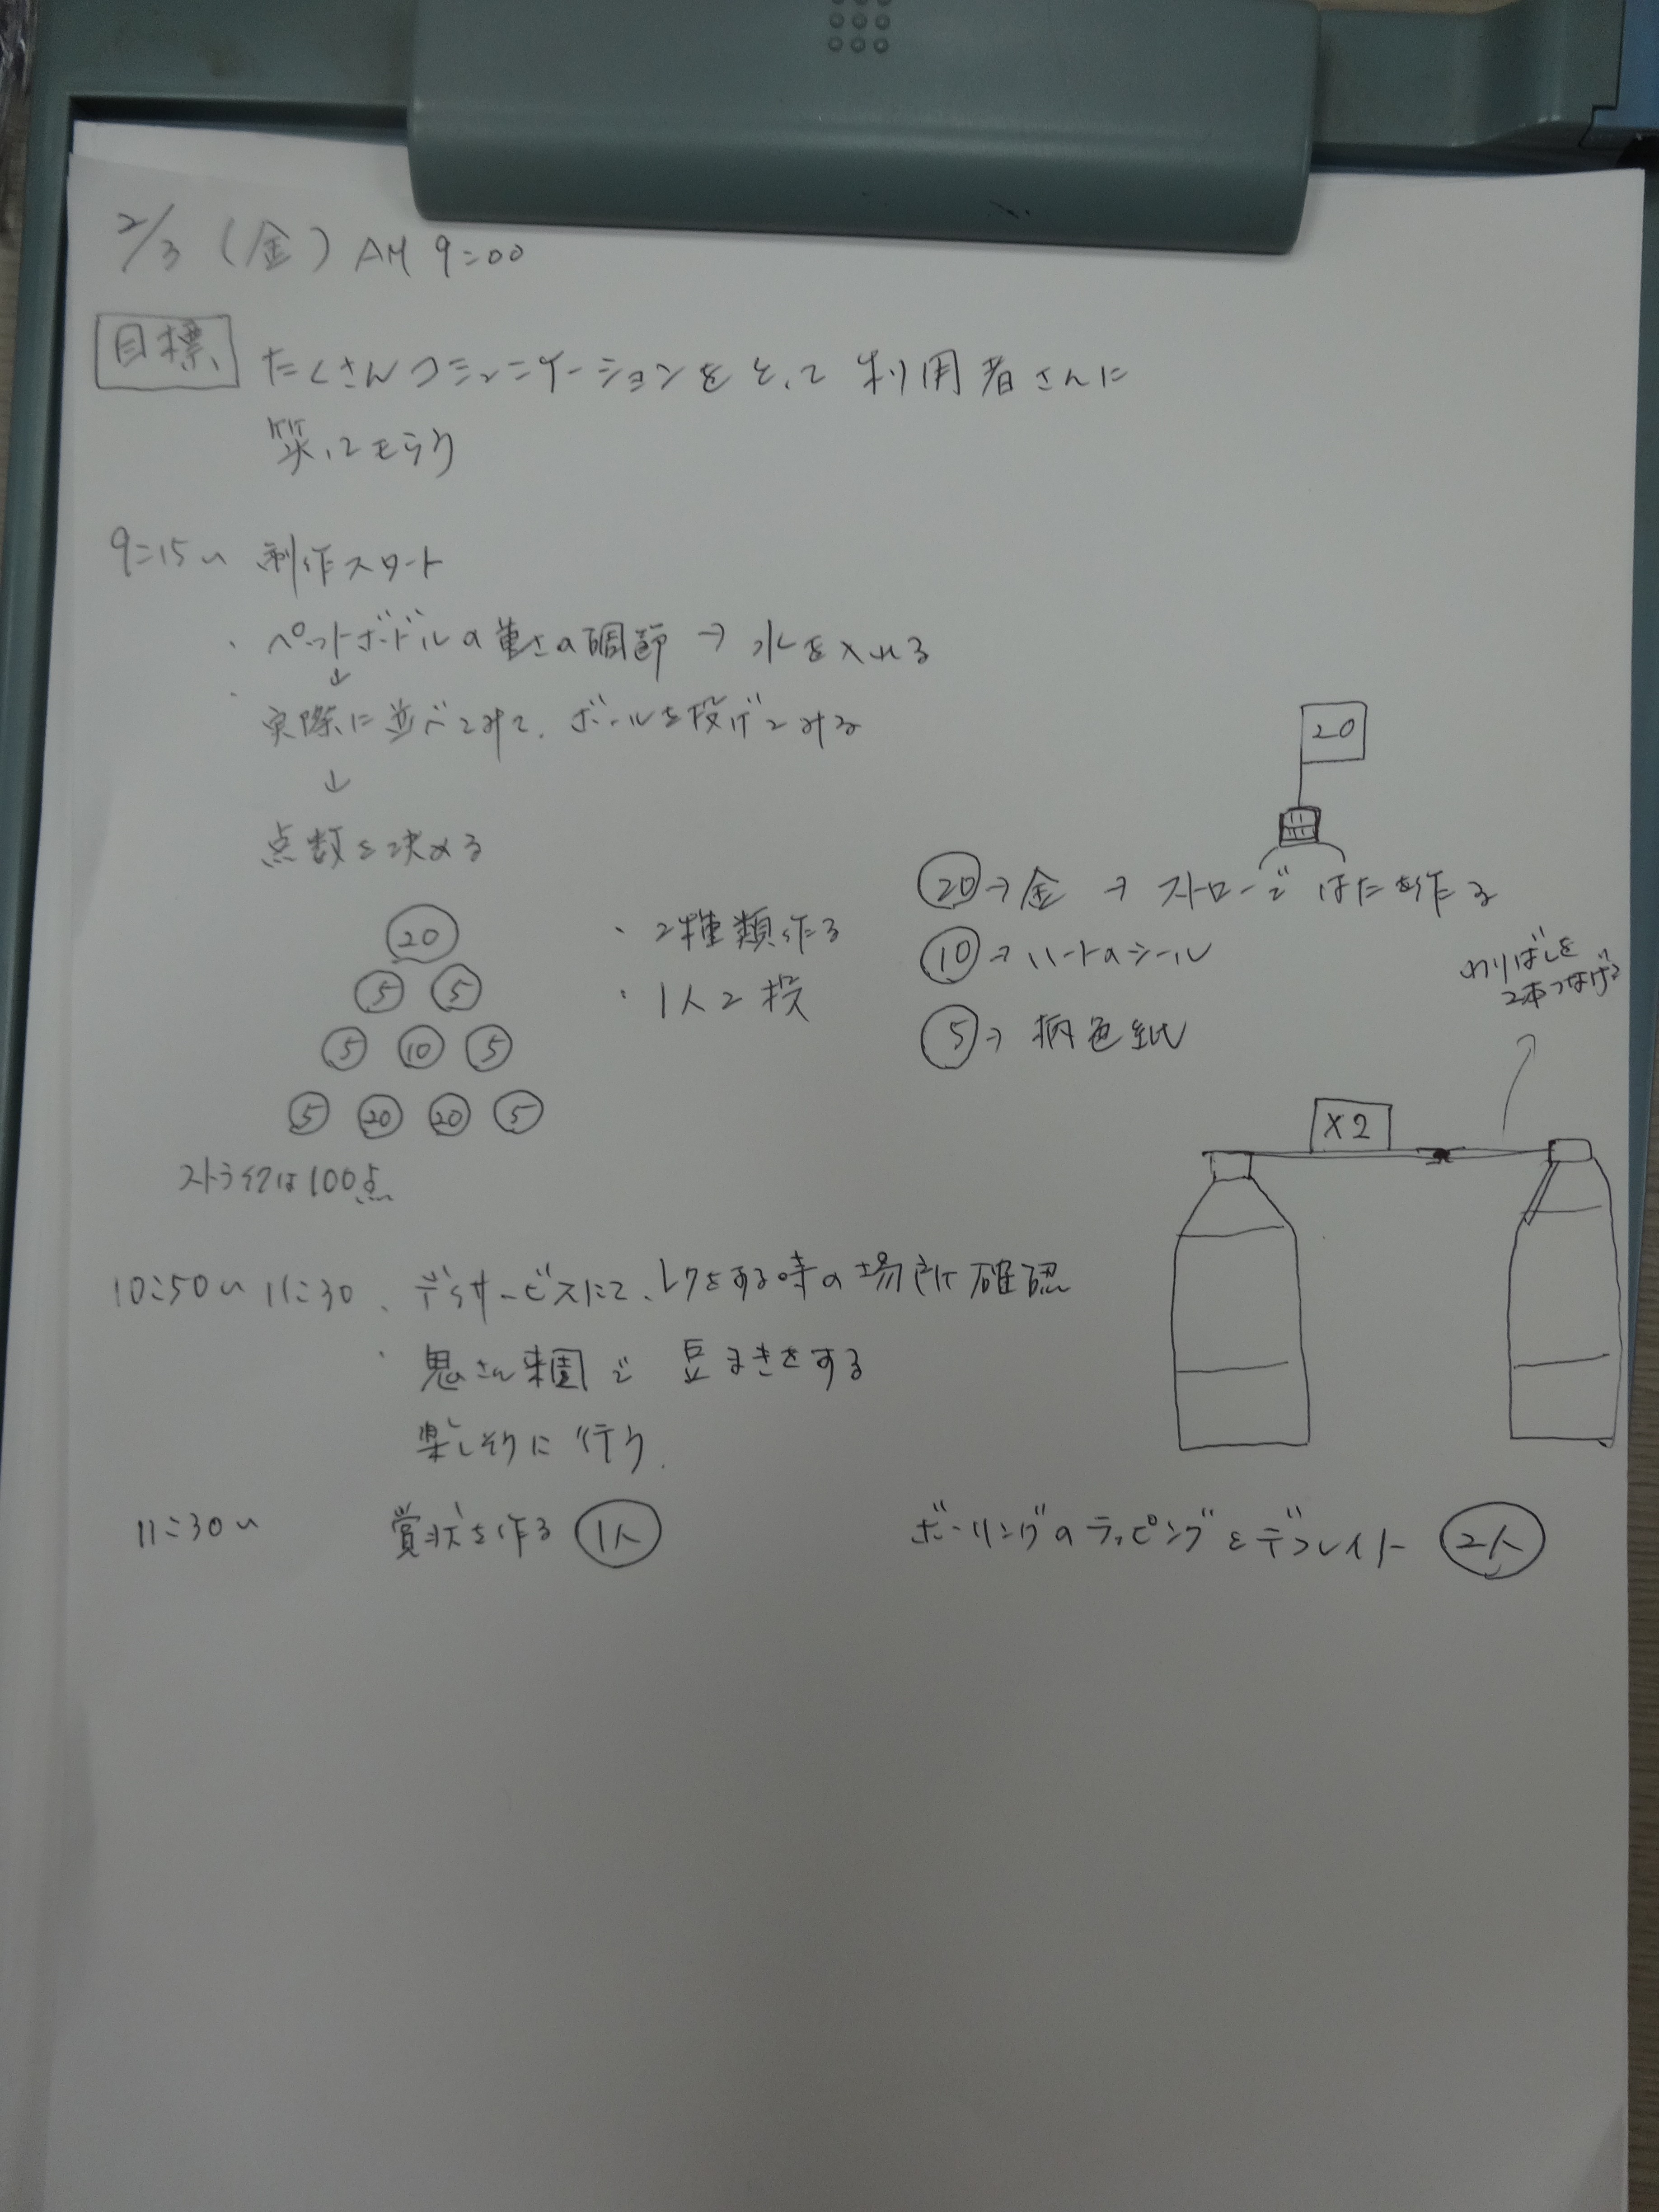 2/3 (金) AM 9:00
目標 たくさんコミュニケーションをとって利用者さんに
笑ってもらう
9:15〜 制作スタート
・ペットボトルの重さの調節 → 水を入れる
↓
実際に並べてみて、ボールを投げてみる
↓
点数を決める
20
5 5
5 10 5
5 20 20 5
ストライクは100点
・2種類作る
・1人2投
20
20→金 → ストローではたを作る
10→ハートのシール
5→柄色紙
わりばしを
2本つなげる
×2
10:50〜11:30 ・デイサービスにて、レクをする時の場所確認
・鬼さん来園で 豆まきをする
楽しそうに行う.
11:30〜 賞状を作る 1人 ボーリングのラッピングをデコレイト 2人